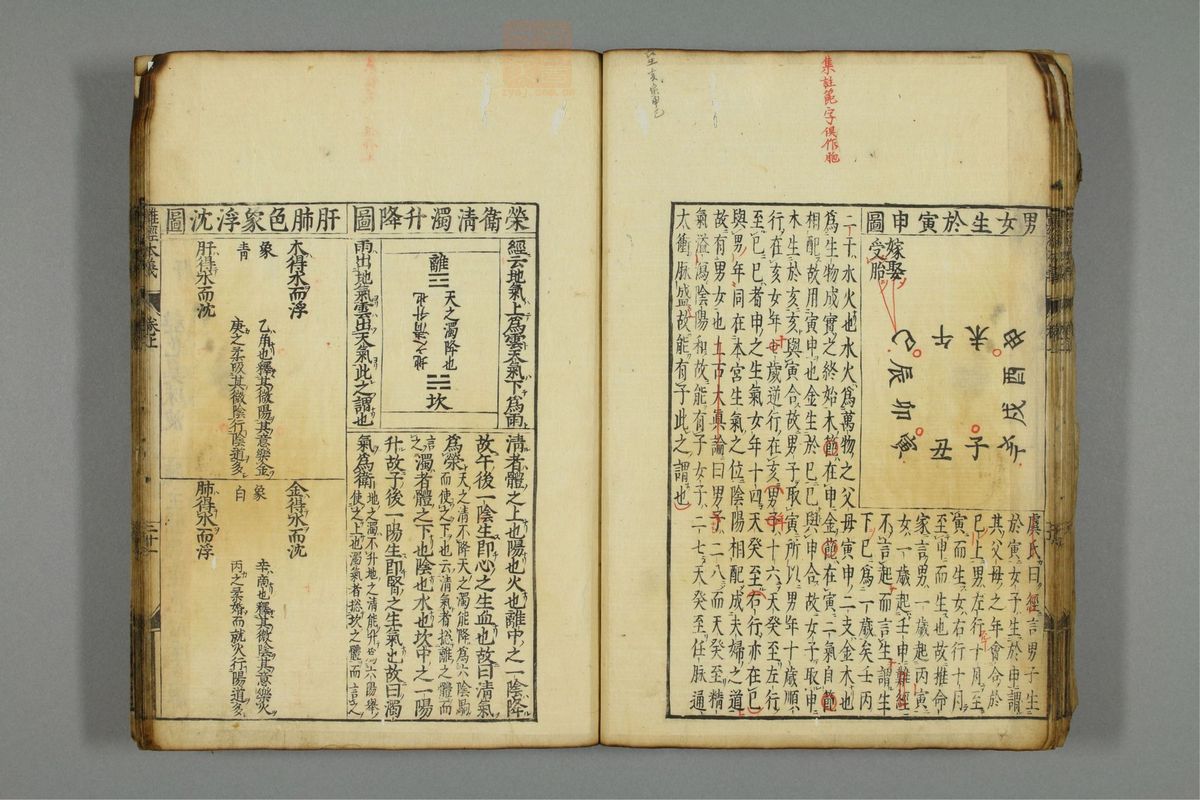 集註範字俱作胞
男女生於寅申圖
嫁娶
受胎
巳
午
未
申
辰
酉
卯
戌
寅
丑
子
亥
虞氏曰經言男子生
於寅女子生於申謂
其父母之年會合於
巳上男左行十月至
寅而生女右行十月
至申而生也故推命
家言男一歲起丙寅
女一歲起壬申難經
不言起而言生謂生
下巳爲一歲矣壬丙
二干水火也水火爲萬物之父母寅申二支金木也
爲生物成實之終始木節在申金節在寅二氣自節
相配故用寅申也金生於巳巳與申合故女子取申
木生於亥亥與寅合故男子取寅所以男年十歲順
行在亥女年十歲逆行在亥男子十六天癸至左行
至巳巳者申之生氣女年十四天癸至右行亦在巳
與男年同在本宮生氣之位陰陽相配成夫婦之道
故有男女也上古天眞論曰男子二八而天癸至精
氣溢瀉陰陽和故能有子女子二七天癸至任脉通
太衝脉盛故能有子此之謂也
榮衛清濁升降圖
經云地氣上爲雲天氣下爲雨
離
天之濁降也
坎
雨出地氣雲出天氣此之謂也
清者體之上也陽也火也離中之一陰降
故午後一陰生即心之生血也故曰清氣
爲榮
天之清不降天之濁能降爲六陰驅
而使之下也云清氣者摠離之體而
言之
濁者體之下也陰也水也坎中之一陽
升故子後一陽生即腎之生氣也故曰濁
氣爲衛
地之濁不升地之清能升爲六陽舉
使之上也濁氣者摠坎之體而言之
肝肺色象浮沈圖
木得水而浮
象
青
肝得水而沈
乙角也釋其微陽其意樂金
庚之柔吸其微陰行陰道多
金得水而沈
象
白
肺得水而浮
辛商也釋其微陰其意樂火
丙之柔婚而就火行陽道多
難經本義
卷上
三十一